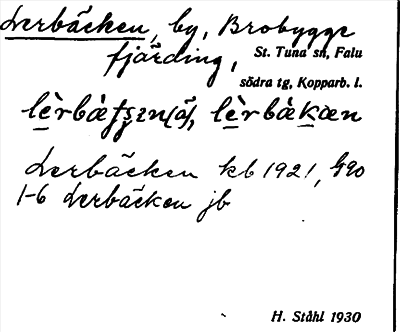 Lerbäcken, by, Brobygge
fjärding, St. Tuna sn, Falu
södra tg, Kopparb. l.
Lerbäcken kb 1921, G90
1-6 Lerbäcken jb
H. Ståhl 1930